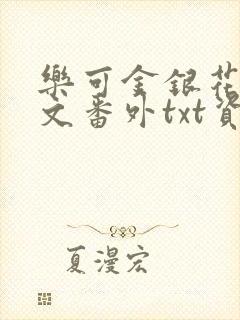 樂可金銀花
文番外txt資
夏漫宏